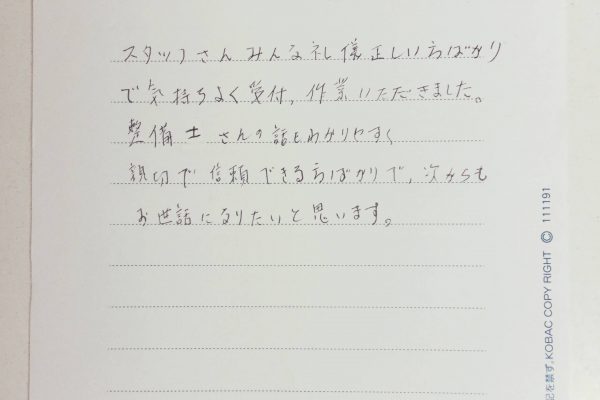 スタッフさんみんな礼儀正しい方ばかり
で気持ちよく受付、作業いただきました。
整備士さんの話もわかりやすく
親切で信頼できる方ばかりで、次からも
お世話になりたいと思います。
記を禁ず。KOBAC COPY RIGHT © 111191